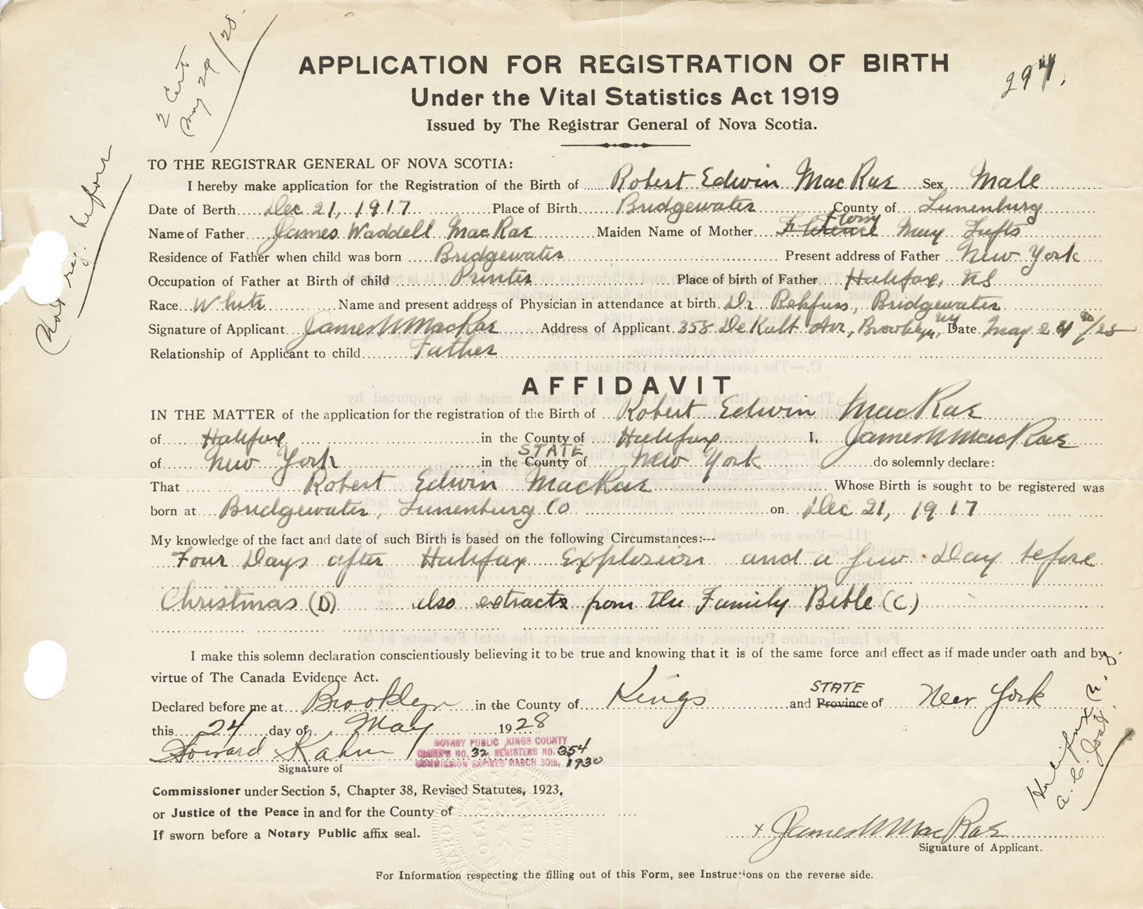 2 Cert
May 29/28.
Not reg. before
APPLICATION FOR REGISTRATION OF BIRTH
294.
Under the Vital Statistics Act 1919
Issued by The Registrar General of Nova Scotia.
TO THE REGISTRAR GENERAL OF NOVA SCOTIA:
I hereby make application for the Registration of the Birth of Robert Edwin MacRae Sex Male
Date of Berth Dec 21, 1917 Place of Birth Bridgewater County of Lunenburg
Name of Father James Waddell MacRae Maiden Name of Mother Florence May Tufts
Residence of Father when child was born Bridgewater Present address of Father New York
Occupation of Father at Birth of child Printer Place of birth of Father Halifax, NS
Race White Name and present address of Physician in attendance at birth Dr. Rehfuss, Bridgewater
Signature of Applicant James W MacRae Address of Applicant 358 DeKalb Ave, Brooklyn, NY Date May 24/28
Relationship of Applicant to child Father
AFFIDAVIT
IN THE MATTER of the application for the registration of the Birth of Robert Edwin MacRae
of Halifax in the County of Halifax I, James W MacRae
of New York in the County of STATE New York do solemnly declare:
That Robert Edwin MacRae Whose Birth is sought to be registered was
born at Bridgewater, Lunenburg Co on Dec 21, 1917
My knowledge of the fact and date of such Birth is based on the following Circumstances:--
Four Days after Halifax Explosion and a few Day before
Christmas (D) also extracts from the Family Bible (C)
I make this solemn declaration conscientiously believing it to be true and knowing that it is of the same force and effect as if made under oath and by
virtue of The Canada Evidence Act.
Declared before me at Brooklyn in the County of Kings and Province STATE of New York
this 24 day of May 1928
Howard Kahn
NOTARY PUBLIC KINGS COUNTY
CLERK'S NO. 32 REGISTERS NO. 354
COMMISSION EXPIRES MARCH 30th, 1930
Signature of
Commissioner under Section 5, Chapter 38, Revised Statutes, 1923,
or Justice of the Peace in and for the County of
If sworn before a Notary Public affix seal.
x James W MacRae
Signature of Applicant.
For Information respecting the filling out of this Form, see Instructions on the reverse side.